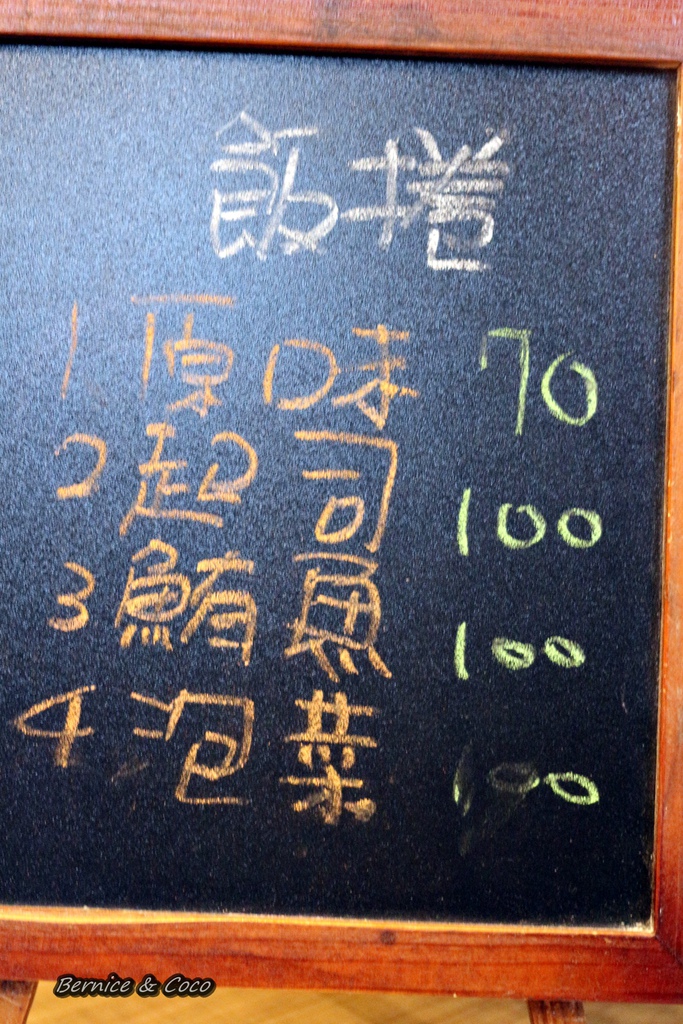 飯捲
1 原味 70
2 起司 100
3 鮪魚 100
4 泡菜 100
Bernice & Coco